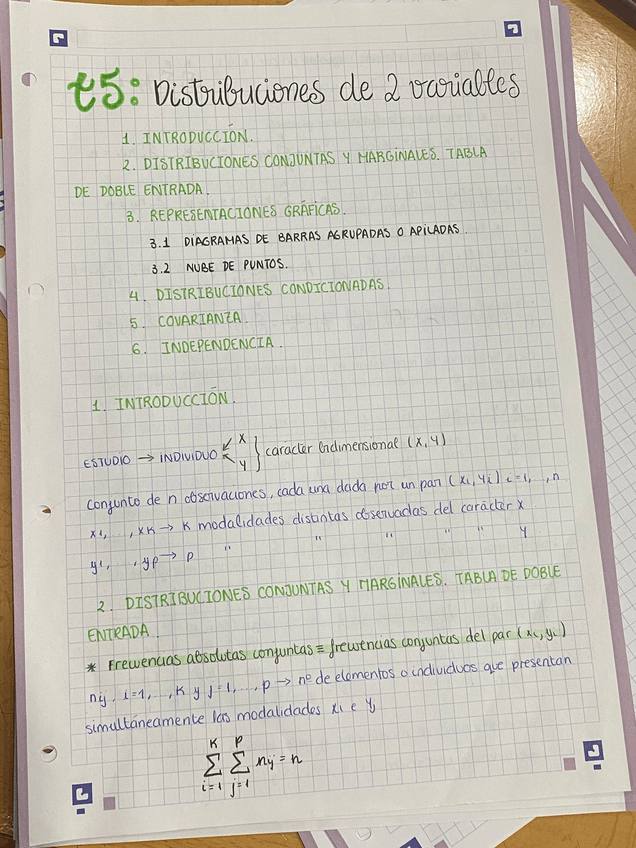 t5: Distribuciones de 2 variables
1. INTRODUCCIÓN.
2. DISTRIBUCIONES CONJUNTAS Y MARGINALES. TABLA
DE DOBLE ENTRADA.
3. REPRESENTACIONES GRÁFICAS.
3.1 DIAGRAMAS DE BARRAS AGRUPADAS O APILADAS.
3.2 NUBE DE PUNTOS.
4. DISTRIBUCIONES CONDICIONADAS.
5. COVARIANZA.
6. INDEPENDENCIA.
1. INTRODUCCIÓN.
ESTUDIO → INDIVIDUO ↙ X ↖ Y } carácter bidimensional (X,Y)
Conjunto de n observaciones, cada una dada por un par (xi, yi) i=1,...,n
x1,...,xK → K modalidades distintas observadas del carácter X
y1,...,yp → p " " " " " Y
2. DISTRIBUCIONES CONJUNTAS Y MARGINALES. TABLA DE DOBLE
ENTRADA.
* Frecuencias absolutas conjuntas ≡ frecuencias conjuntas del par (xi, yi)
nij, i=1,...,K y j=1,...,p → nº de elementos o individuos que presentan
simultáneamente las modalidades xi e yj
K p
∑ ∑ nij = n
i=1 j=1